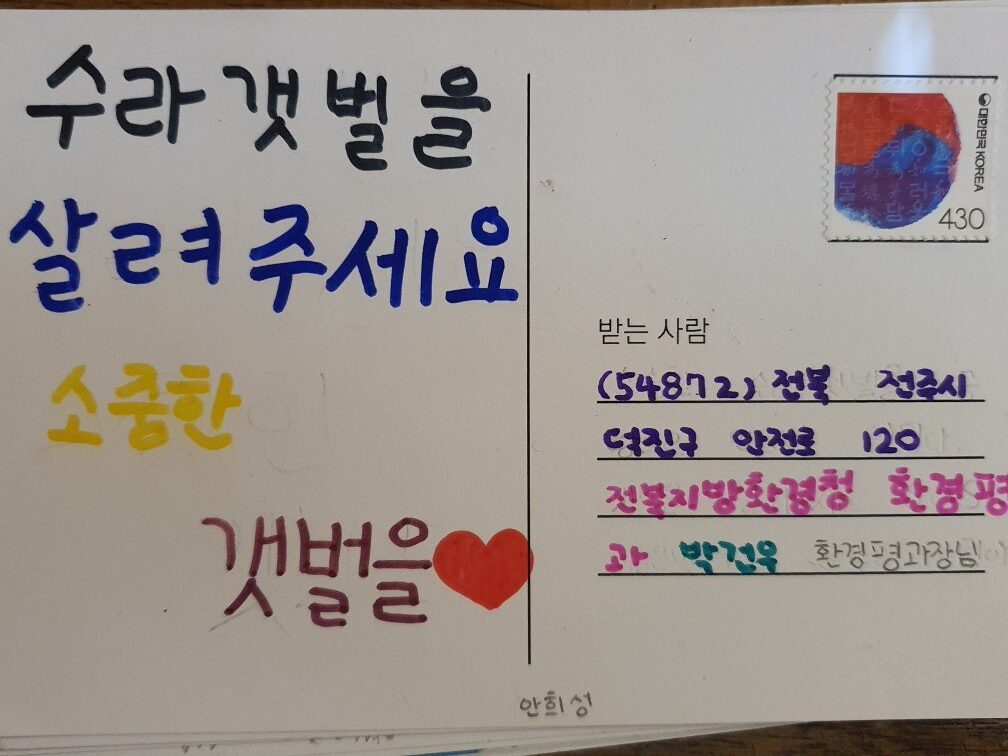 수라갯벌을
살려주세요
소중한
갯벌을
대한민국 KOREA
430
받는 사람
(54872) 전북 전주시
덕진구 안전로 120
전북지방환경청 환경평
과 박건우 환경평과장님
안희성